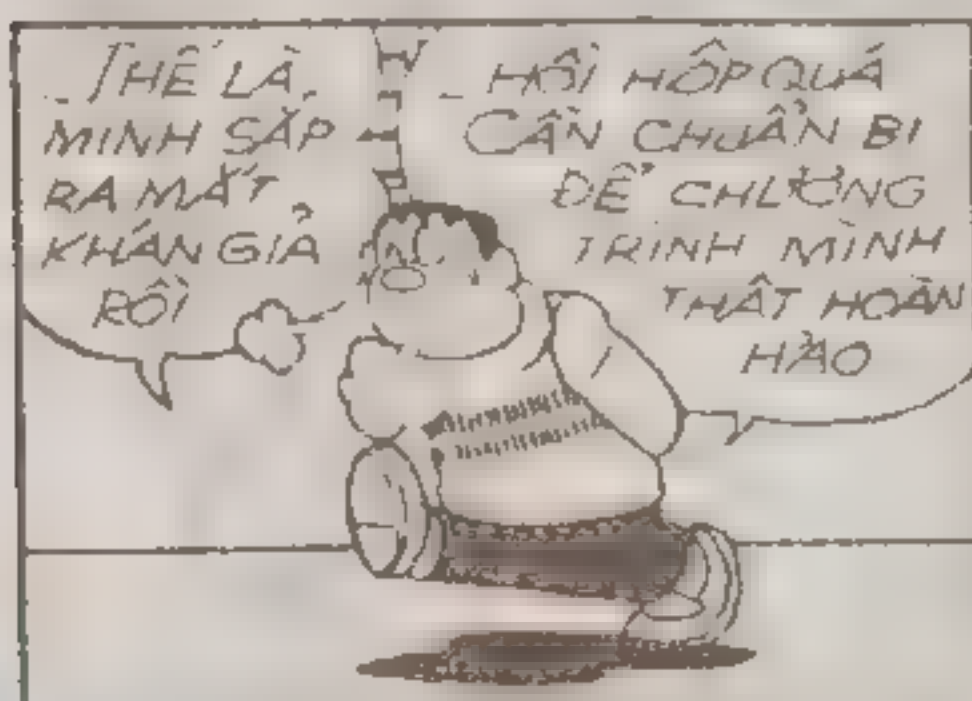 _ THẾ LÀ
MINH SẮP
RA MẮT
KHÁN GIẢ
RỒI
_ HỒI HỘP QUÁ
CẦN CHUẨN BI
ĐỂ CHƯƠNG
TRINH MÌNH
THẬT HOÀN
HẢO